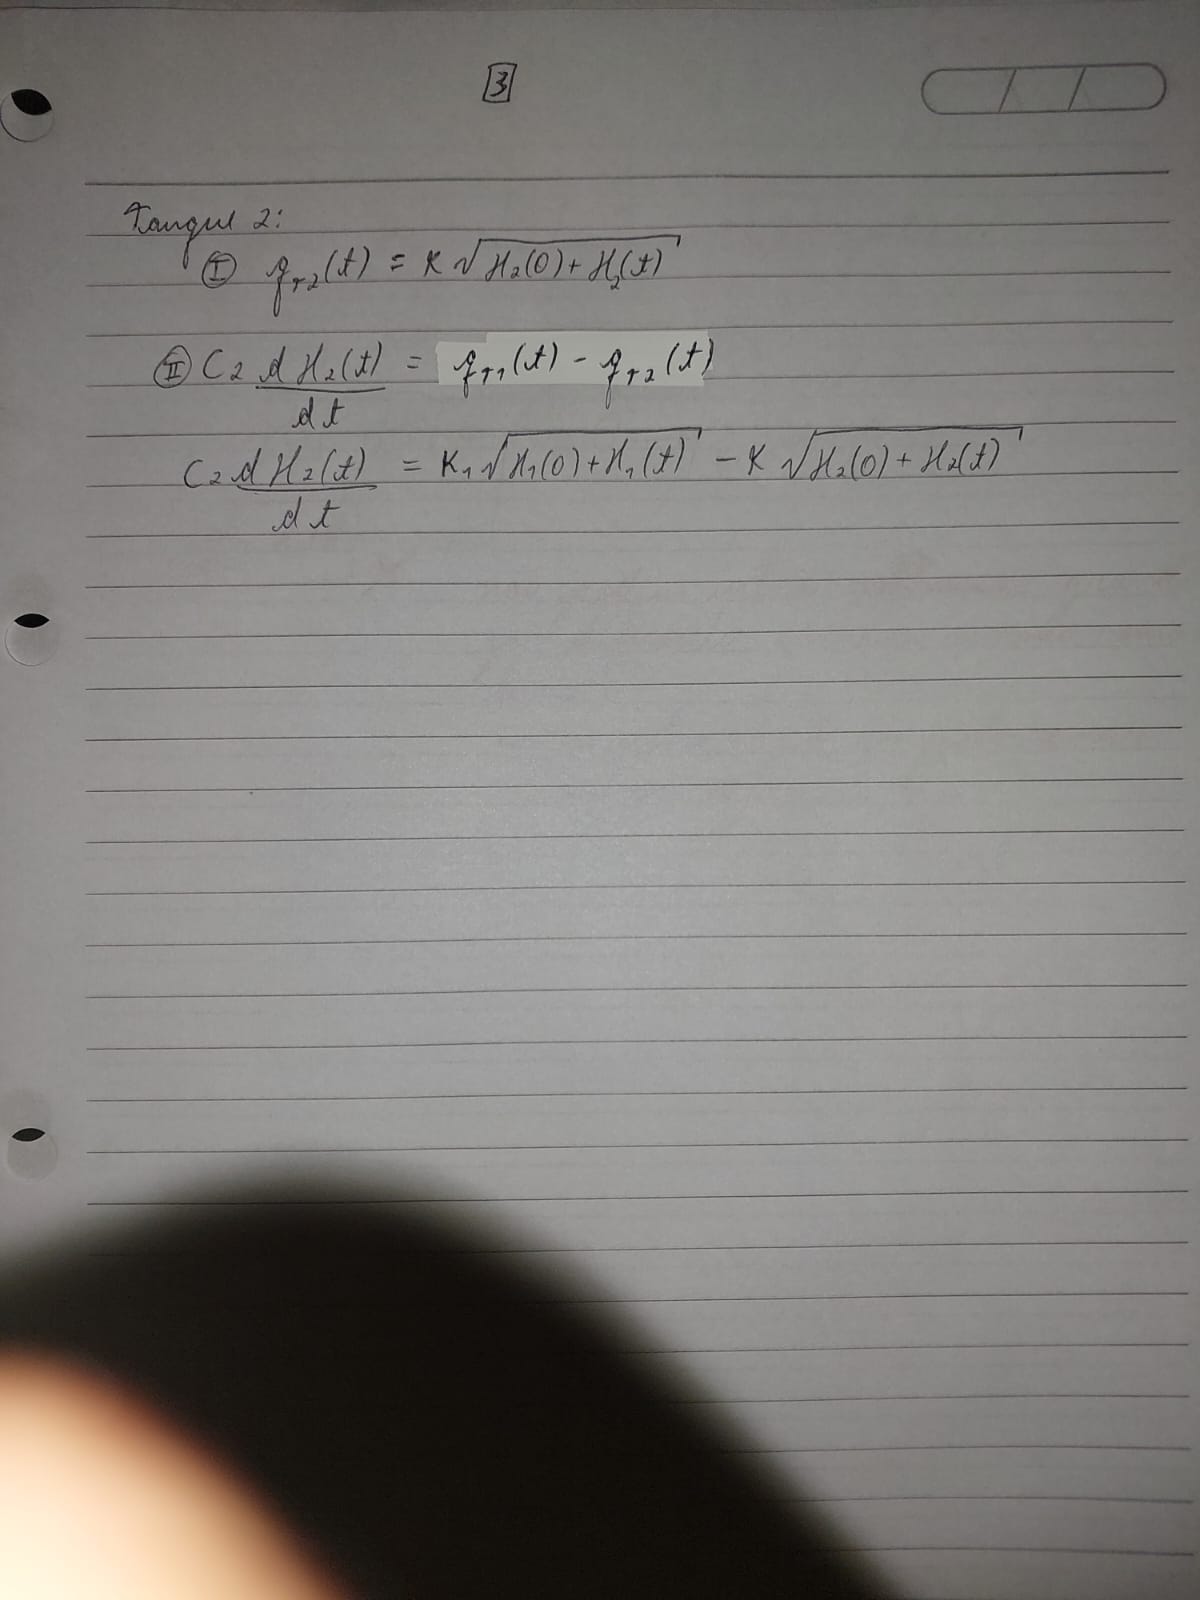 3
Tanque 2:
Ⓘ q_T2(t) = K √(H₂(0) + H₂(t))
Ⓘ︎Ⓘ C₂ dH₂(t)/dt = q_T1(t) - q_T2(t)
C₂ dH₂(t)/dt = K₁ √(H₁(0) + H₁(t)) - K √(H₂(0) + H₂(t))